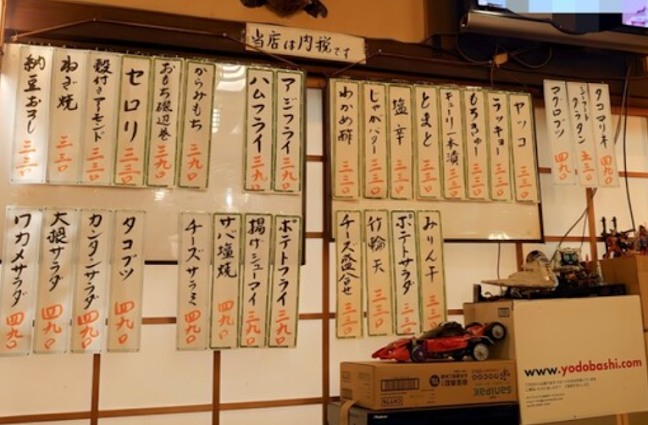 当店は内税です
アジフライ 三九〇
ハムフライ 三九〇
からみもち 三九〇
おもち磯辺巻 三九〇
セロリ 三三〇
殻付きアーモンド 三三〇
ねぎ焼 三三〇
納豆おろし 三三〇
ポテトフライ 三九〇
揚げシューマイ 三九〇
サバ塩焼 四九〇
チーズサラミ 四九〇
タコブツ 四九〇
カンタンサラダ 四九〇
大根サラダ 四九〇
ワカメサラダ 四九〇
タコマリネ 四九〇
シーフードグラタン 五三〇
マグロブツ 四九〇
ヤッコ 三三〇
ラッキョー 三三〇
もろきゅう 三三〇
キューリ一本漬 三三〇
とまと 三三〇
塩辛 三三〇
じゃがバター 三三〇
わかめ酢 三三〇
みりん干 三三〇
ポテトサラダ 三三〇
竹輪天 三三〇
チーズ盛合せ 三三〇
www.yodobashi.com
sanipak